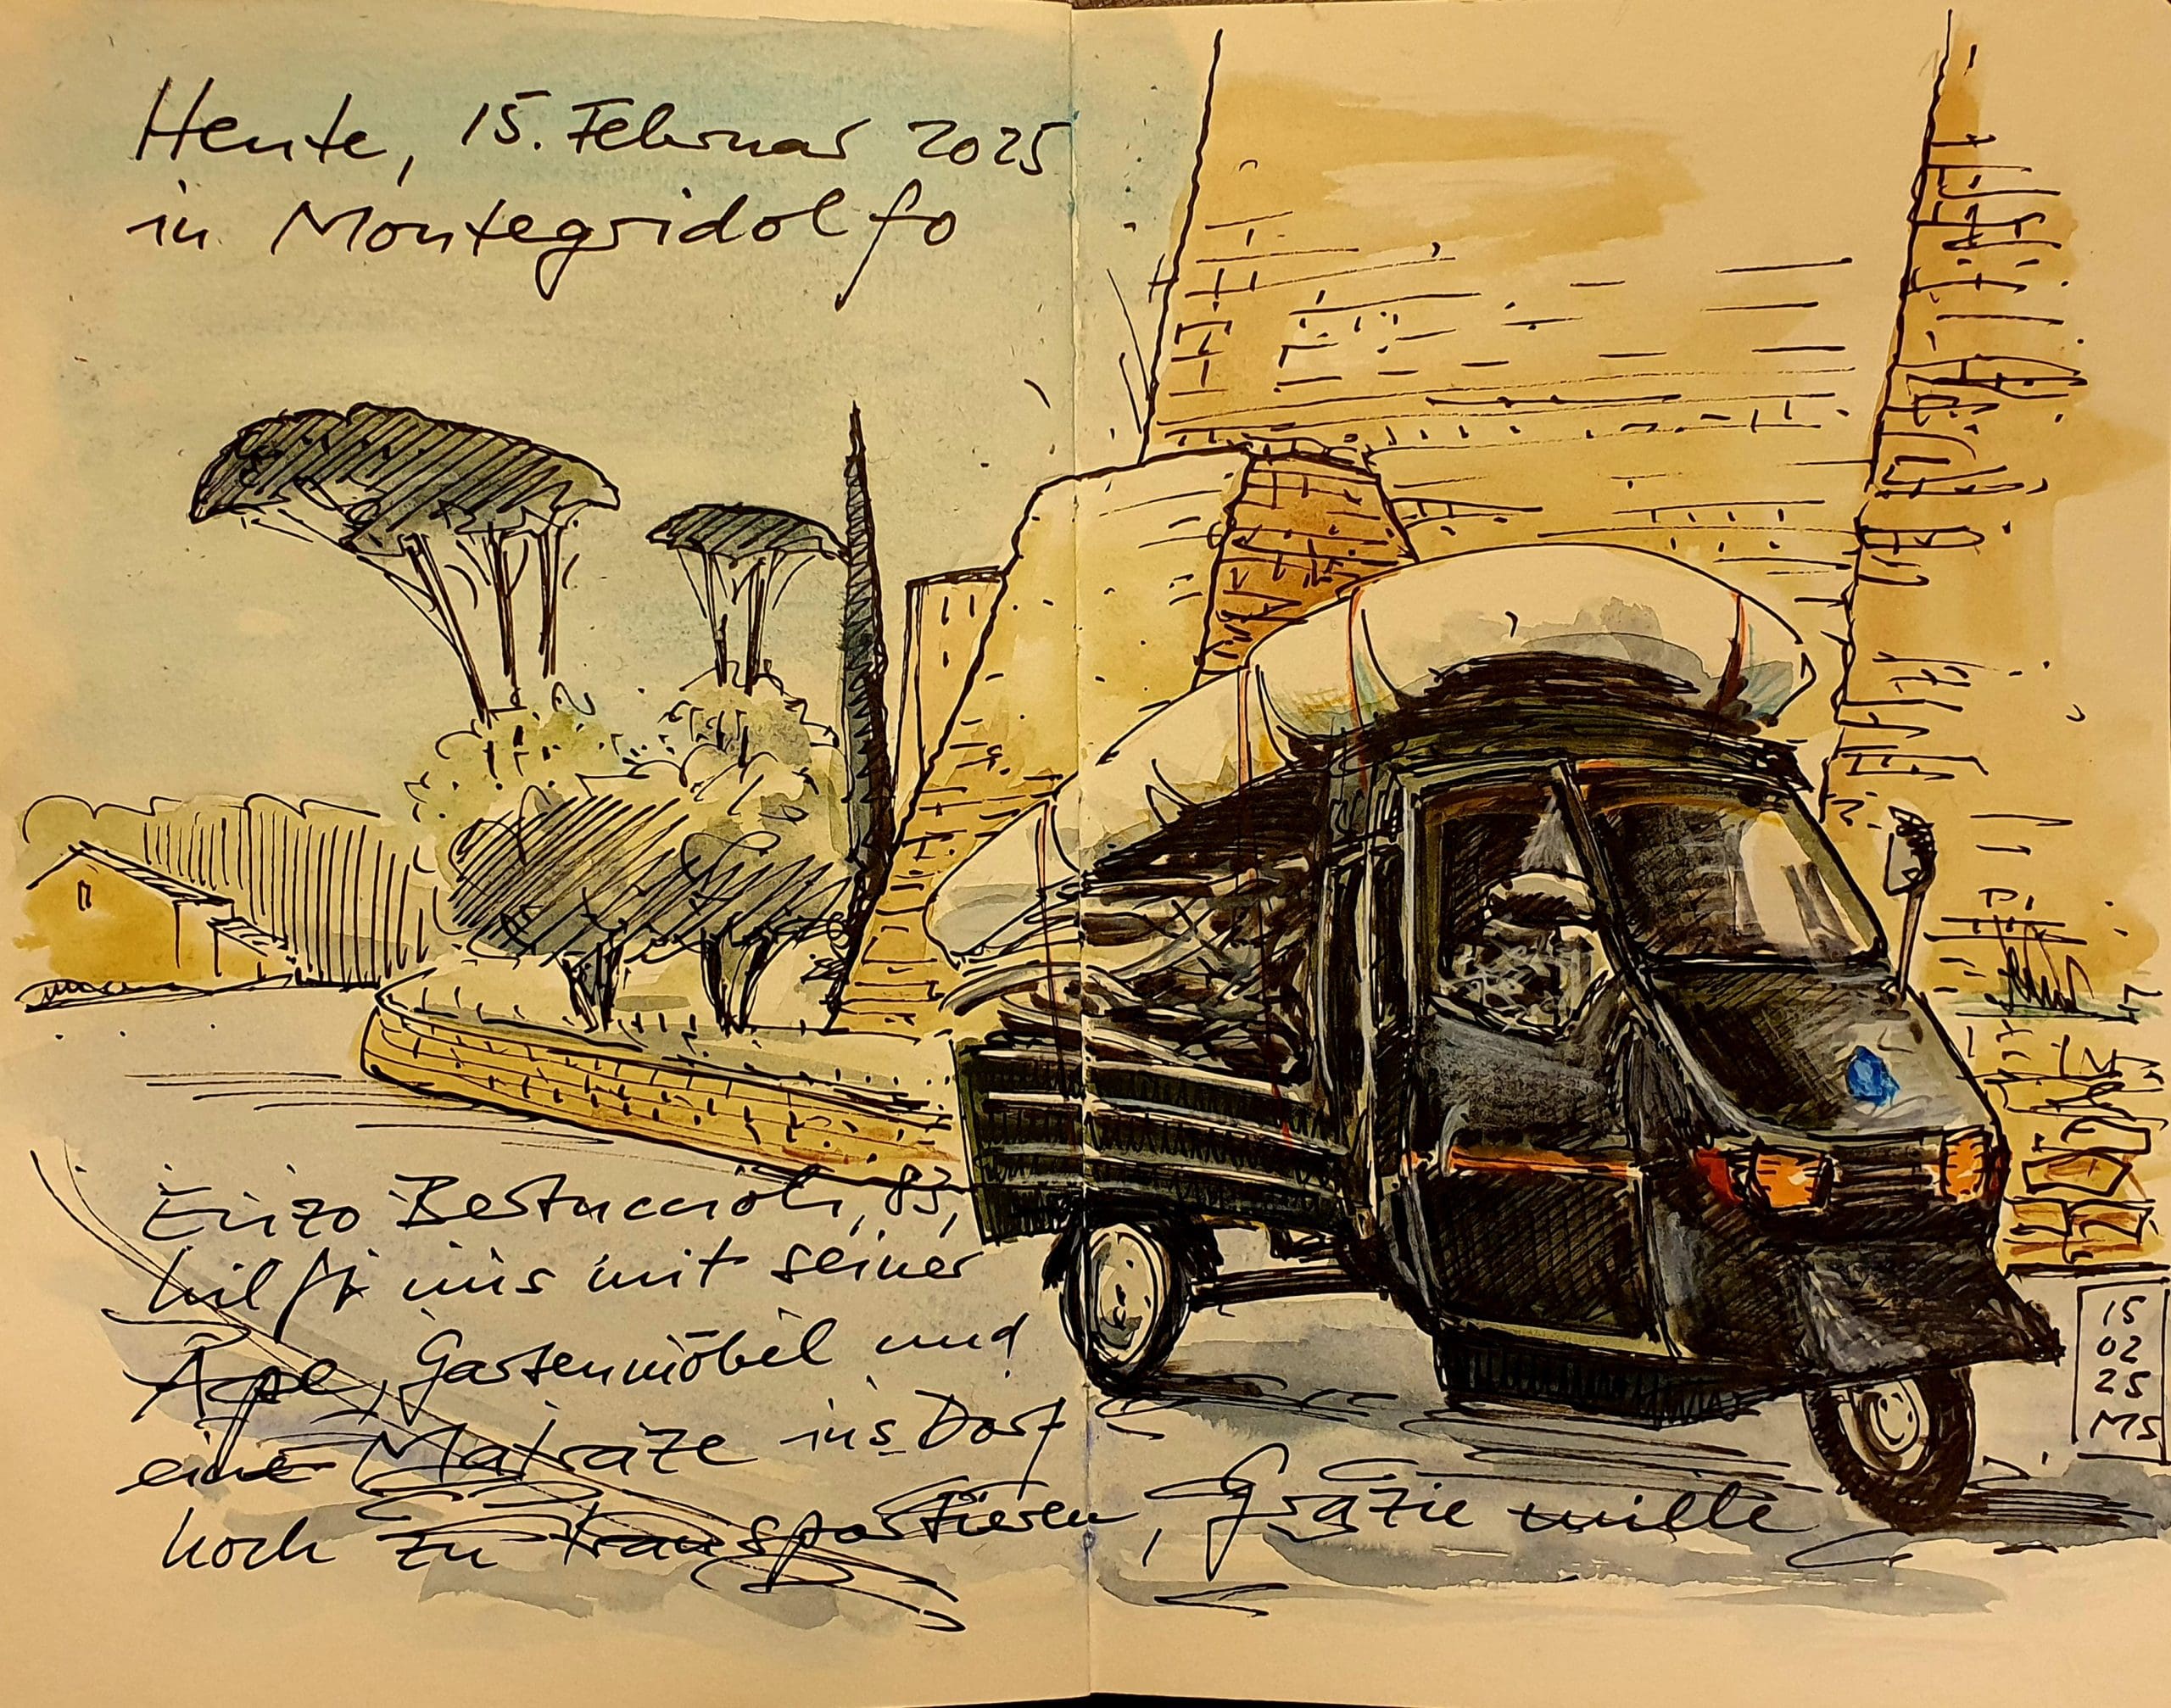 Heute, 15. Februar 2025
in Montegridolfo
Enzo Bestuccioli, 83,
hilft uns mit seiner
Ape, Gartenmöbel und
eine Matratze ins Dorf
hoch zu transportieren, Grazie mille
15
02
25
MS